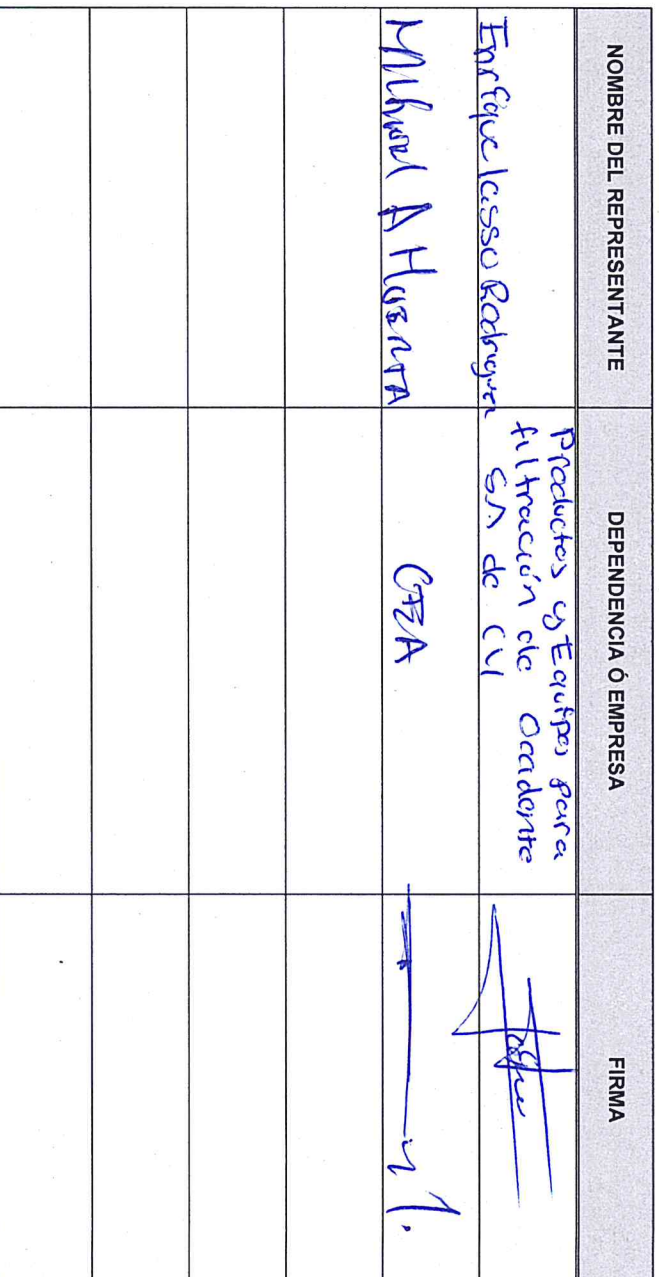 NOMBRE DEL REPRESENTANTE
DEPENDENCIA Ó EMPRESA
FIRMA
Enrique lasso Rodriguez
Productos y Equipos para
filtración de Occidente
SA de CV
A Huerta